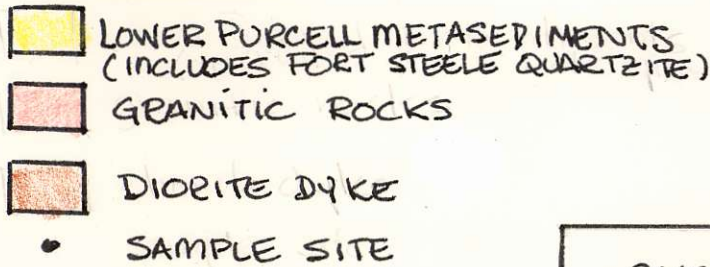 LOWER PURCELL METASEDIMENTS
(INCLUDES FORT STEELE QUARTZITE)
GRANITIC ROCKS
DIORITE DYKE
SAMPLE SITE